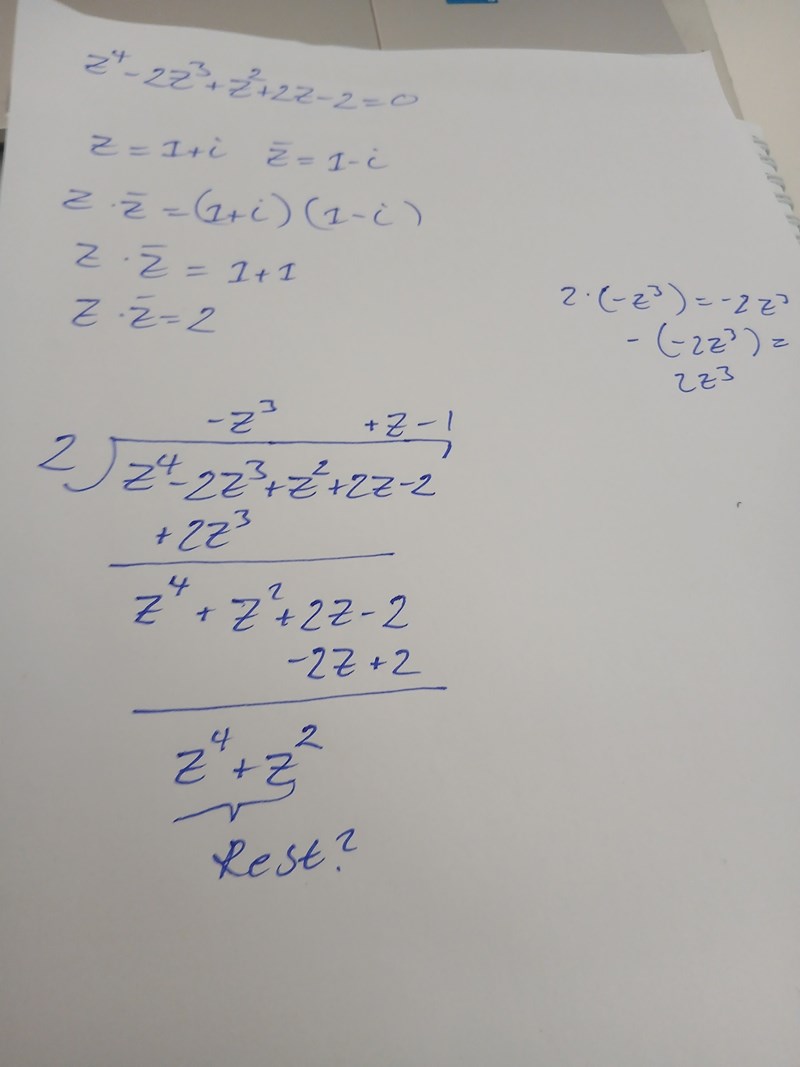 z⁴-2z³+z²+2z-2=0
z=1+i z̄=1-i
z·z̄=(1+i)(1-i)
z·z̄=1+1
z·z̄=2
2·(-z³)=-2z³
-(-2z³)=
2z³
-z³ +z-1
2)z⁴-2z³+z²+2z-2
+2z³
z⁴+z²+2z-2
-2z+2
z⁴+z²
Rest?